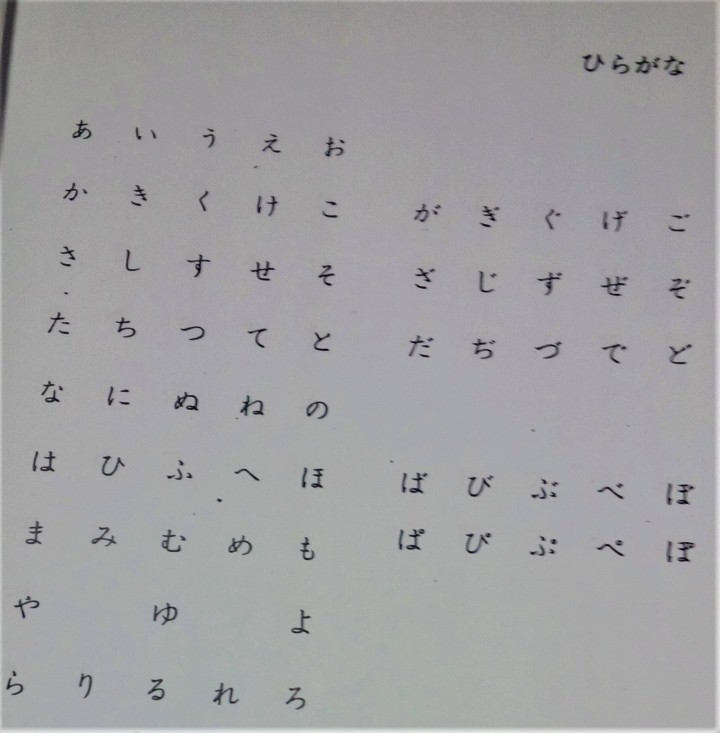 ひらがな
あ い う え お
か き く け こ が ぎ ぐ げ ご
さ し す せ そ ざ じ ず ぜ ぞ
た ち つ て と だ ぢ づ で ど
な に ぬ ね の
は ひ ふ へ ほ ば び ぶ べ ぼ
ま み む め も ぱ ぴ ぷ ぺ ぽ
や ゆ よ
ら り る れ ろ